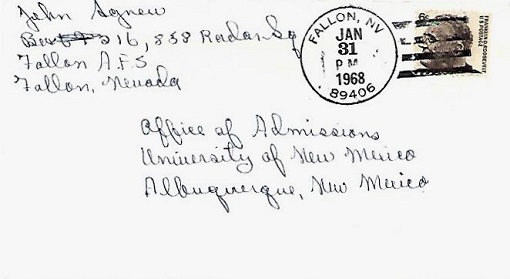 John Agnew
Box 216, 858 Radar Sq
Fallon A.F.S
Fallon, Nevada
FALLON, NV
JAN
31
P M
1968
89406
6¢
FRANKLIN D. ROOSEVELT
U.S. POSTAGE
Office of Admissions
University of New Mexico
Albuquerque, New Mexico